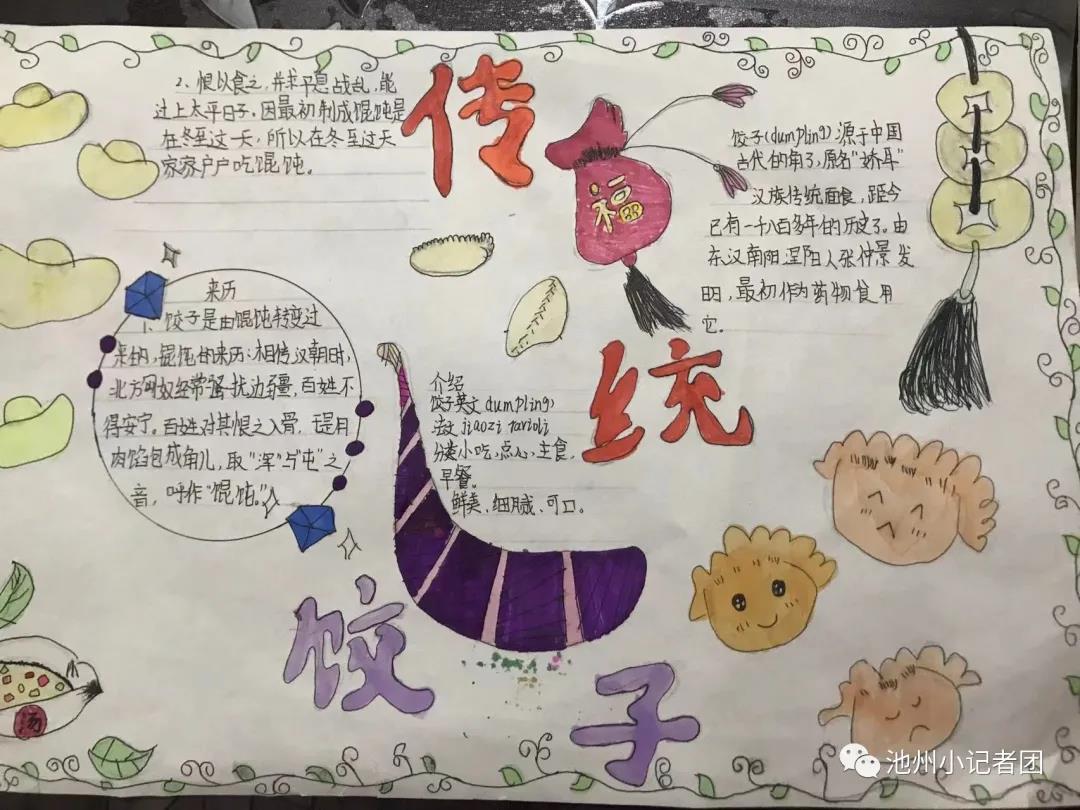 传统
饺子
2、恨以食之,并求平息战乱,能
过上太平日子。因最初制成馄饨是
在冬至这一天,所以在冬至这天
家家户户吃馄饨。
福
饺子(dumpling)源于中国
古代的角子,原名“娇耳”
汉族传统面食,距今
已有一千八百多年的历史了。由
东汉南阳涅阳人张仲景发
明,最初作为药物食用
它.
来历
1、饺子是由馄饨转变过
来的,馄饨的来历:相传汉朝时,
北方匈奴经常骚扰边疆,百姓不
得安宁。百姓对其恨之入骨,于是用
肉馅包成角儿,取“浑”与“屯”之
音,呼作“馄饨。”
介绍
饺子英文dumpling
法文jiaozi ravioli
分类小吃,点心,主食,
早餐。
鲜美、细腻、可口。
汤
池州小记者团